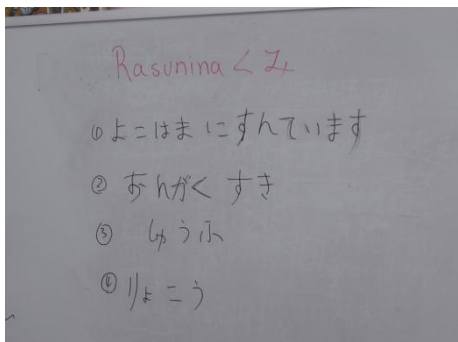 Rasuninaくみ
① よこはまにすんでいます
② おんがく すき
③ しゅうふ
④ りょこう